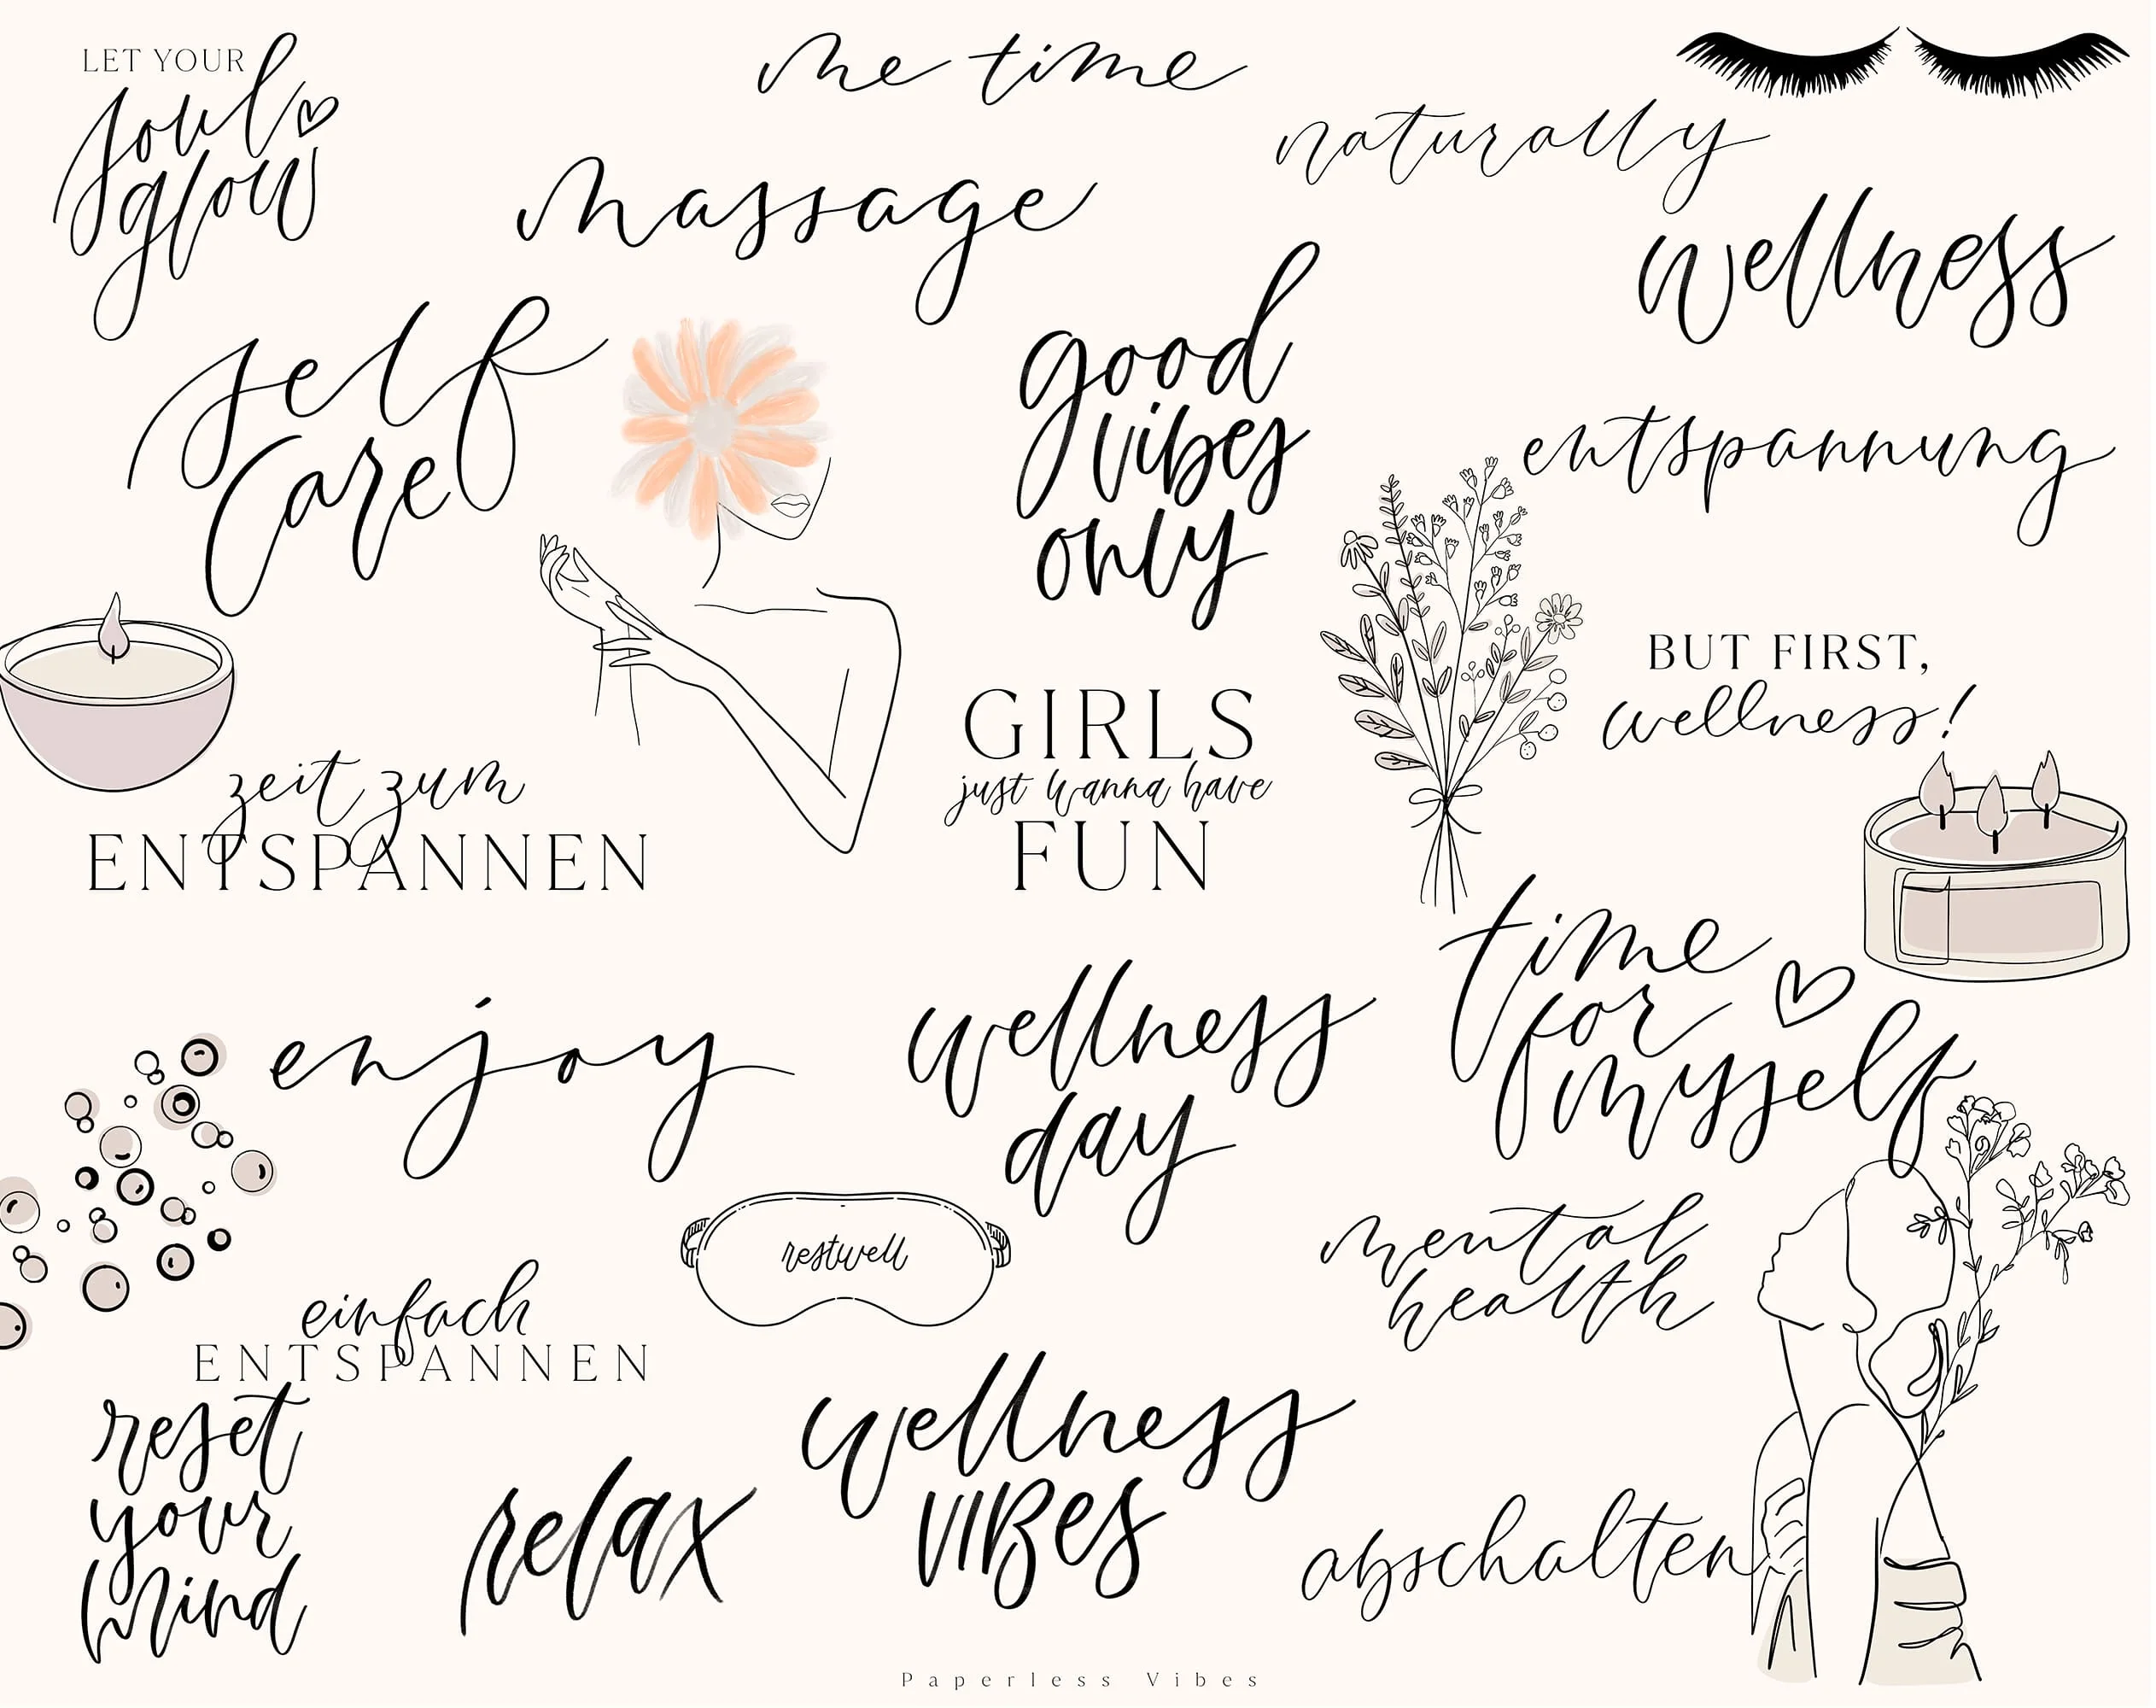 LET YOUR
soul
glow
me time
naturally
massage
wellness
self
care
good
vibes
only
entspannung
BUT FIRST,
wellness!
GIRLS
just wanna have
FUN
zeit zum
ENTSPANNEN
time
for
myself
enjoy
wellness
day
restwell
mental
health
einfach
ENTSPANNEN
reset
your
mind
relax
wellness
VIBES
abschalten
Paperless Vibes